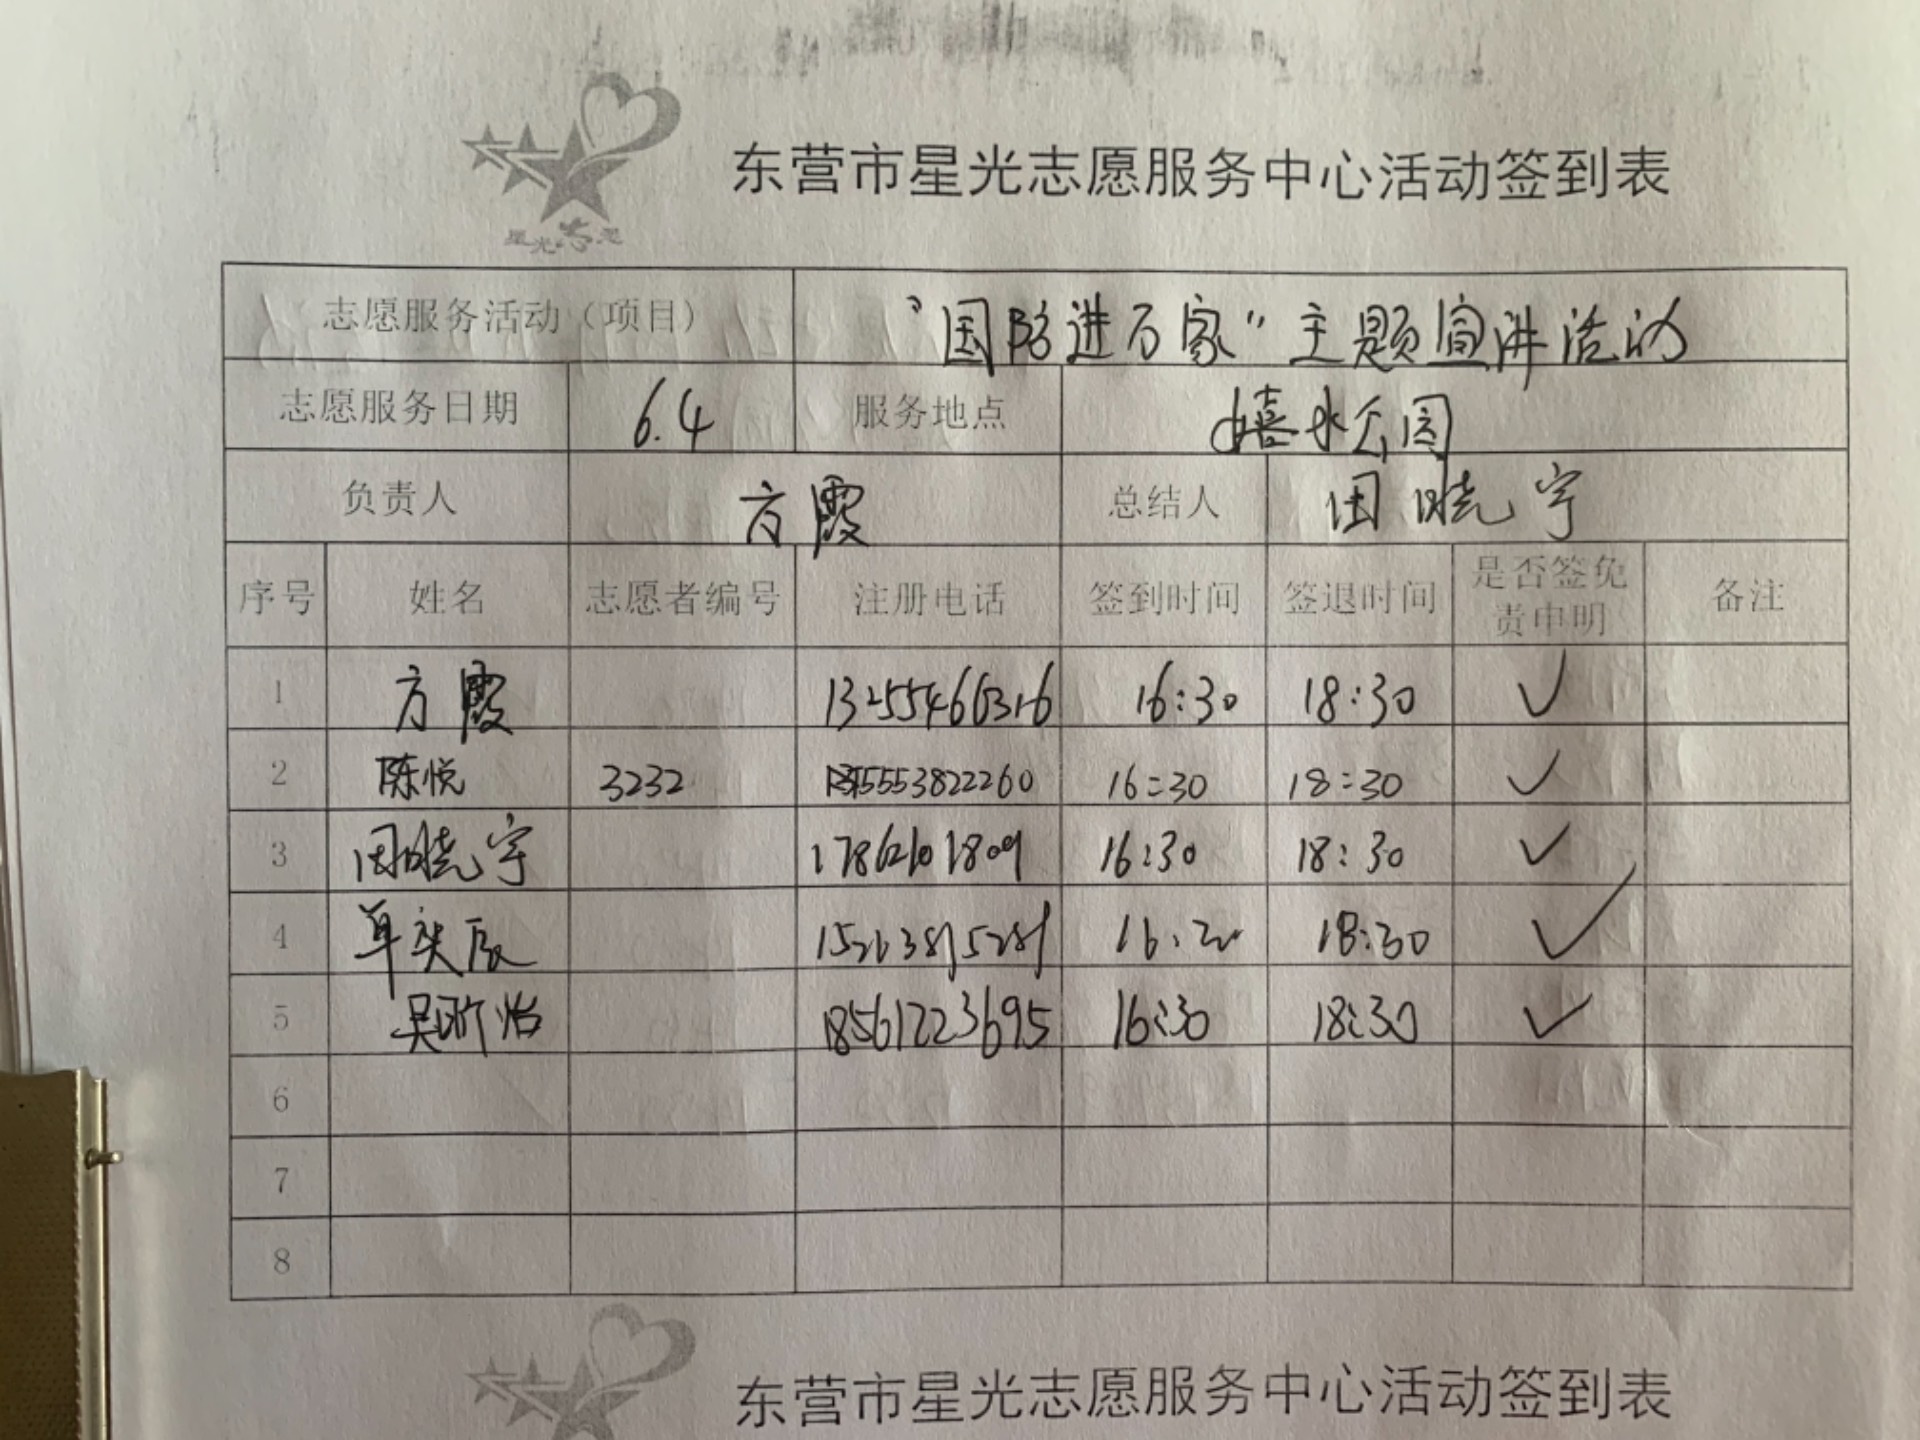 东营市星光志愿服务中心活动签到表
星光志愿
志愿服务活动（项目） “国防进万家”主题宣讲活动
志愿服务日期 6.4 服务地点 嬉水公园
负责人 方霞 总结人 田晓宇
序号 姓名 志愿者编号 注册电话 签到时间 签退时间 是否签免责申明 备注
1 方霞 13255466316 16:30 18:30 ✓
2 陈悦 3232 16:30 18:30 ✓
3 田晓宇 17862101809 16:30 18:30 ✓
4 18:30 ✓
5 吴昕怡 18561223695 16:30 18:30 ✓
6
7
8
东营市星光志愿服务中心活动签到表